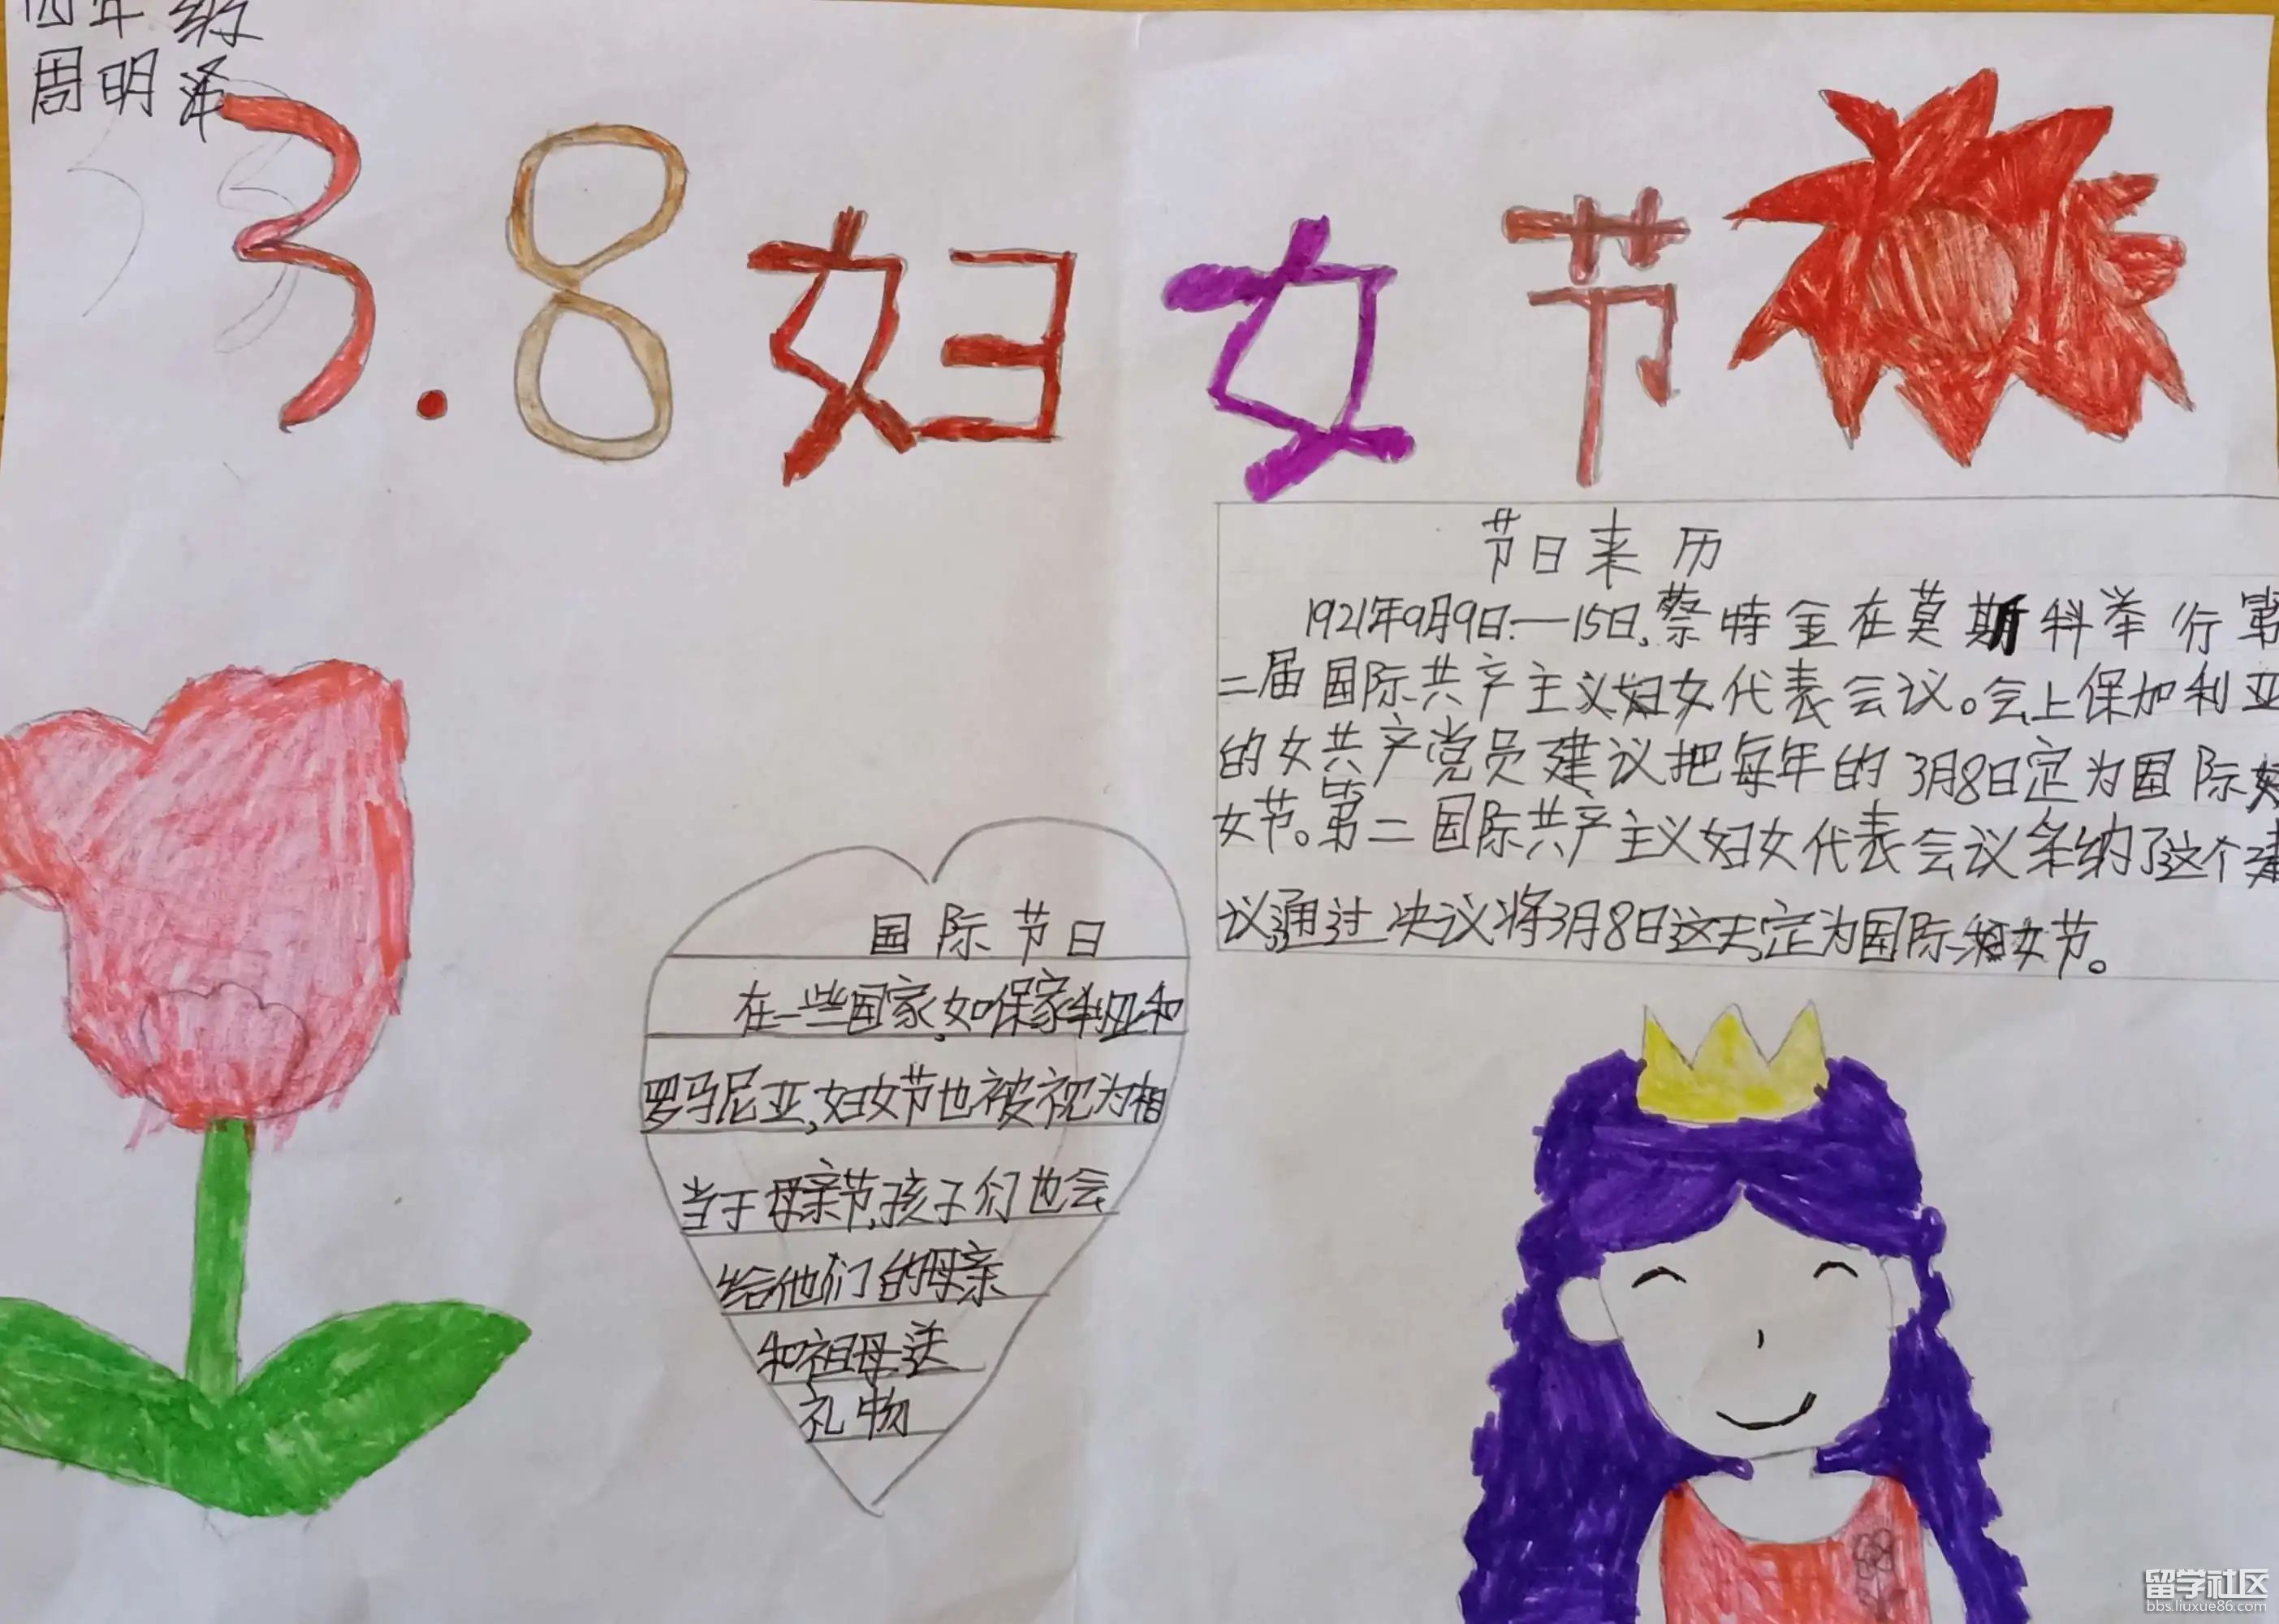 四年级
周明泽
3.8妇女节
节日来历
1921年9月9日—15日,蔡特金在莫斯科举行第
二届国际共产主义妇女代表会议。会上保加利亚
的女共产党员建议把每年的3月8日定为国际妇
女节。第二国际共产主义妇女代表会议采纳了这个建
议,通过决议将3月8日这天定为国际妇女节。
国际节日
在一些国家,如保家利亚和
罗马尼亚,妇女节也被视为相
当于母亲节,孩子们也会
给他们的母亲
和祖母送
礼物
留学社区
bbs.liuxue86.com